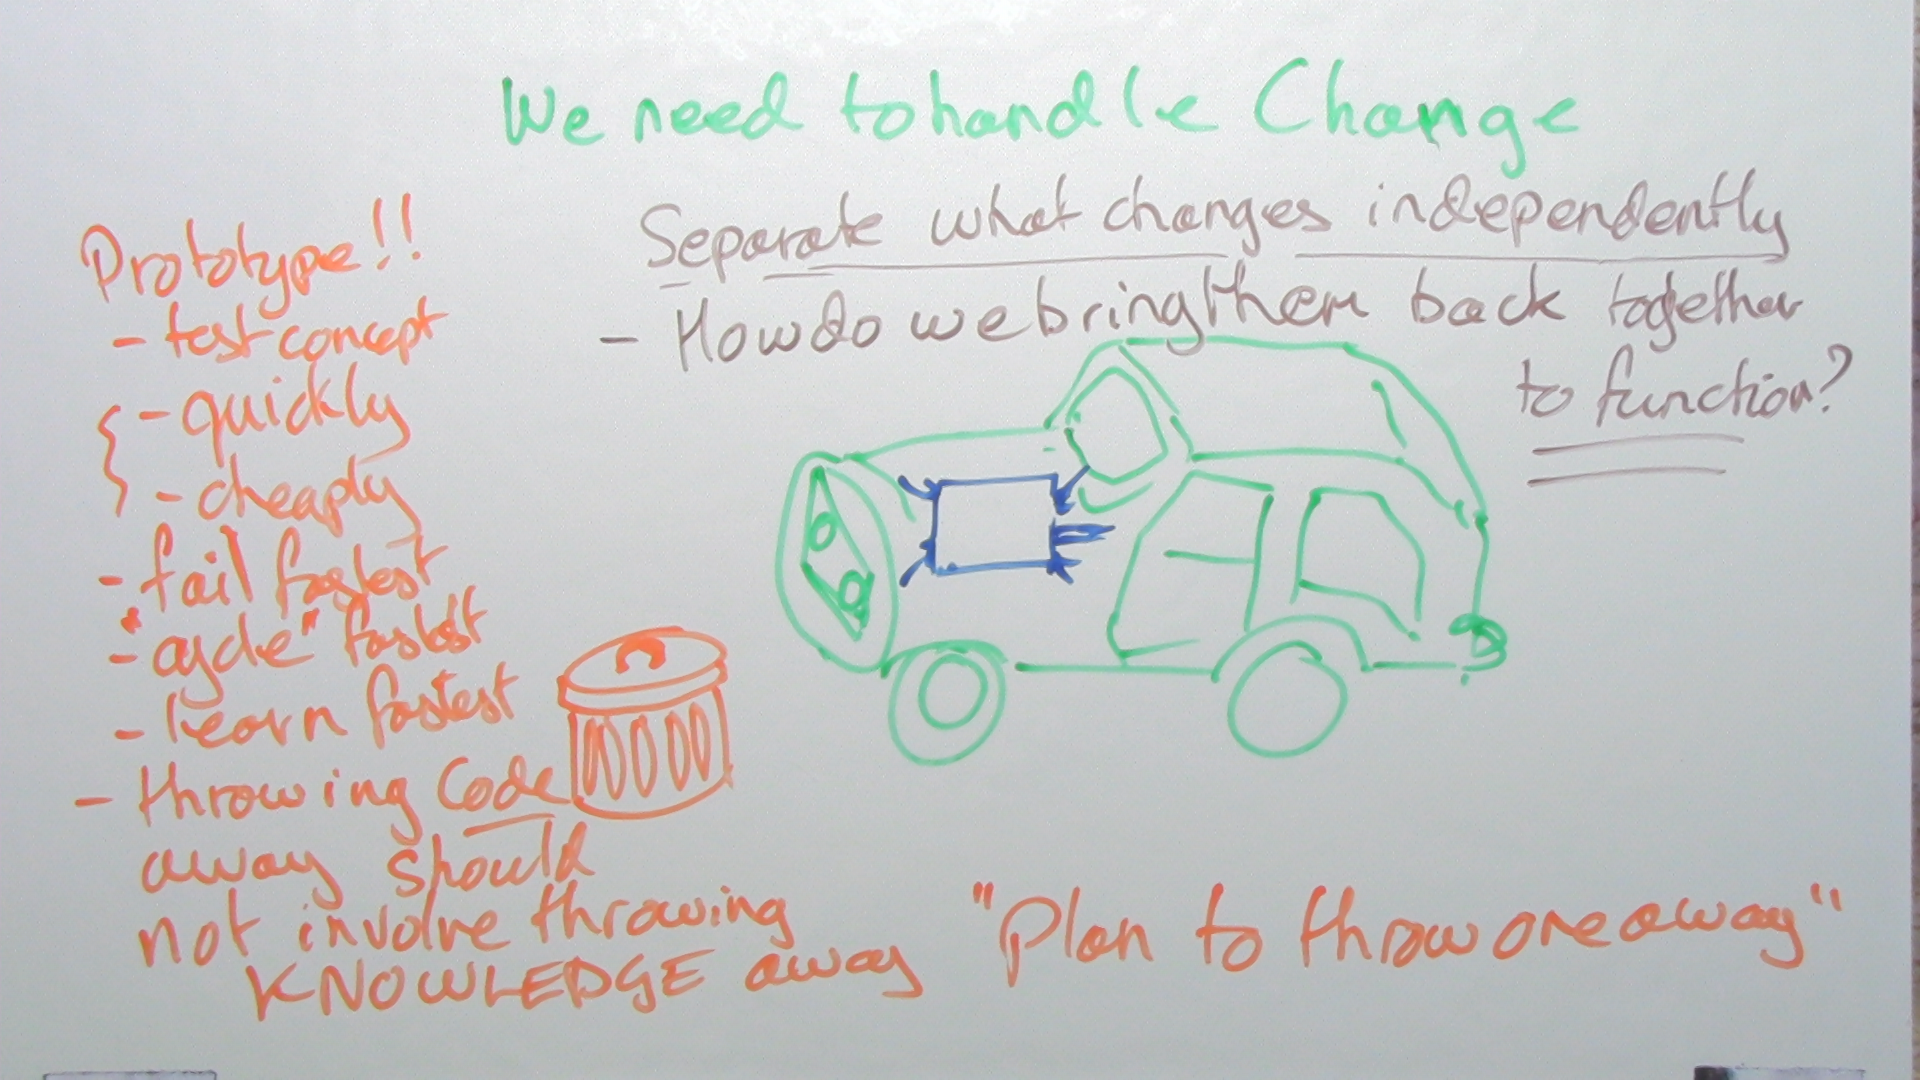 We need to handle Change
Separate what changes independently
- How do we bring them back together
to function?
Prototype!!
- test concept
- quickly
- cheaply
- fail fastest
- "cycle" fastest
- learn fastest
- throwing Code
away should
not involve throwing
KNOWLEDGE away
"Plan to throw one away"